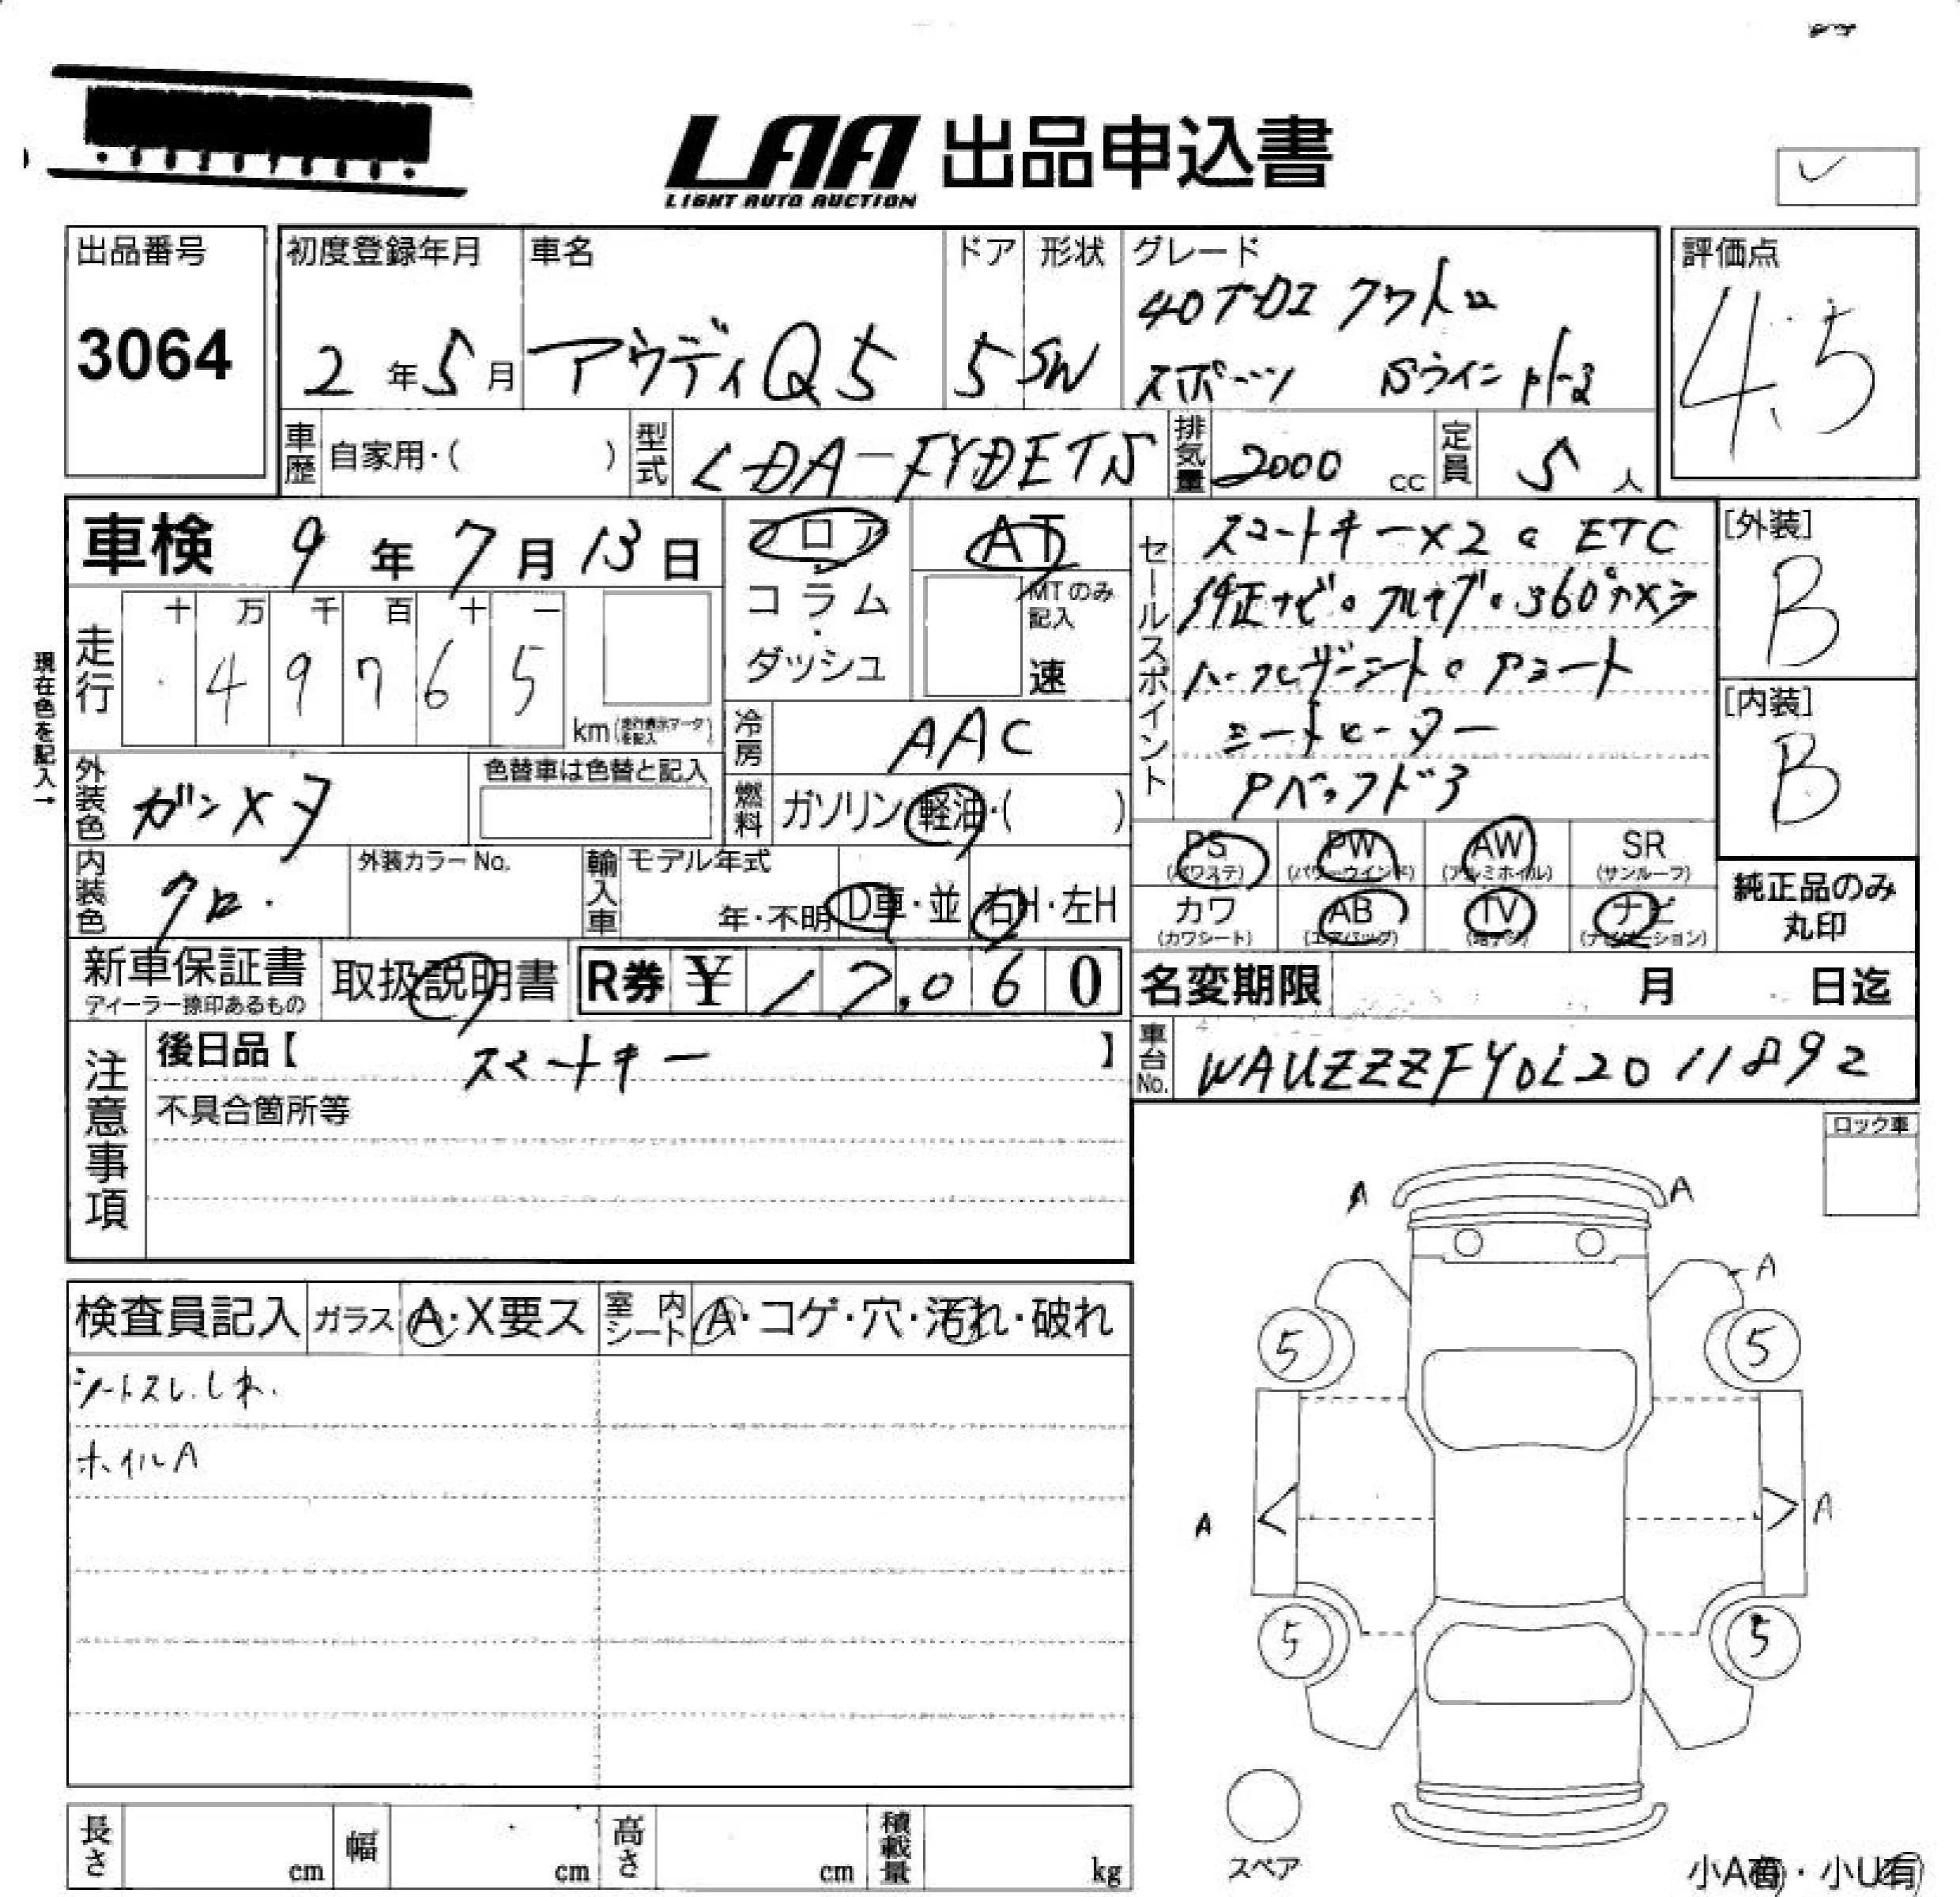 LAA 出品申込書
LIGHT AUTO AUCTION
出品番号
3064
初度登録年月
2年5月
車名
アウディQ5
ドア
5
形状
SW
グレード
40TDI クワトロ
スポーツ Sライン
評価点
4.5
車歴 自家用・( )
型式 LDA-FYDETS
排気量 2000 cc
定員 5 人
車検 9年7月13日
フロア
コラム
・
ダッシュ
AT
MTのみ
記入
速
セールスポイント
スマートキー×2。ETC
純正ナビ。フルセグ。360°カメラ
ハーフレザーシート。Pシート
シートヒーター
Pバックドア
[外装]
B
[内装]
B
現在色を記入→
走行
十 万 千 百 十 一
4 9 7 6 5
km(走行表示マークを記入)
冷房 AAC
燃料 ガソリン・軽油・( )
外装色 ガンメタ
色替車は色替と記入
内装色 クロ.
外装カラーNo.
輸入車
モデル年式
年・不明
D車・並
右H・左H
PS
(パワステ)
PW
(パワーウインド)
AW
(アルミホイル)
SR
(サンルーフ)
カワ
(カワシート)
AB
(エアバッグ)
TV
(地デジ)
ナビ
(ナビゲーション)
純正品のみ
丸印
新車保証書
ディーラー捺印あるもの
取扱説明書
R券 ¥ 17,060
名変期限 月 日迄
車台No. WAUZZZFY0L2011892
注意事項
後日品【 スマートキー 】
不具合箇所等
ロック車
検査員記入
ガラス A・X要ス
室内シート A・コゲ・穴・汚れ・破れ
シートスレ.しわ.
ホイルA
A
A
A
5
5
A
A
5
5
スペア
長さ cm
幅 cm
高さ cm
積載量 kg
小A有・小U有